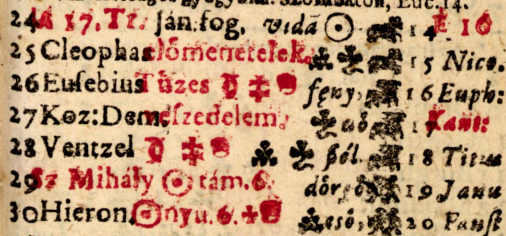 24 A 17. Tr. ján. fog. vidā 14 E 16
25 Cleophas előmenetelek 15 Nico.
26 Eusebius Tüzes fęny, 16 Euph:
27 Koz: Dem. veszedelem, Xant:
28 Ventzel szél. 18 Titus
29 Sz Mihály tám. 6. dörgö 19 Janu
30 Hieron. nyu. 6. esö, 20 Faust